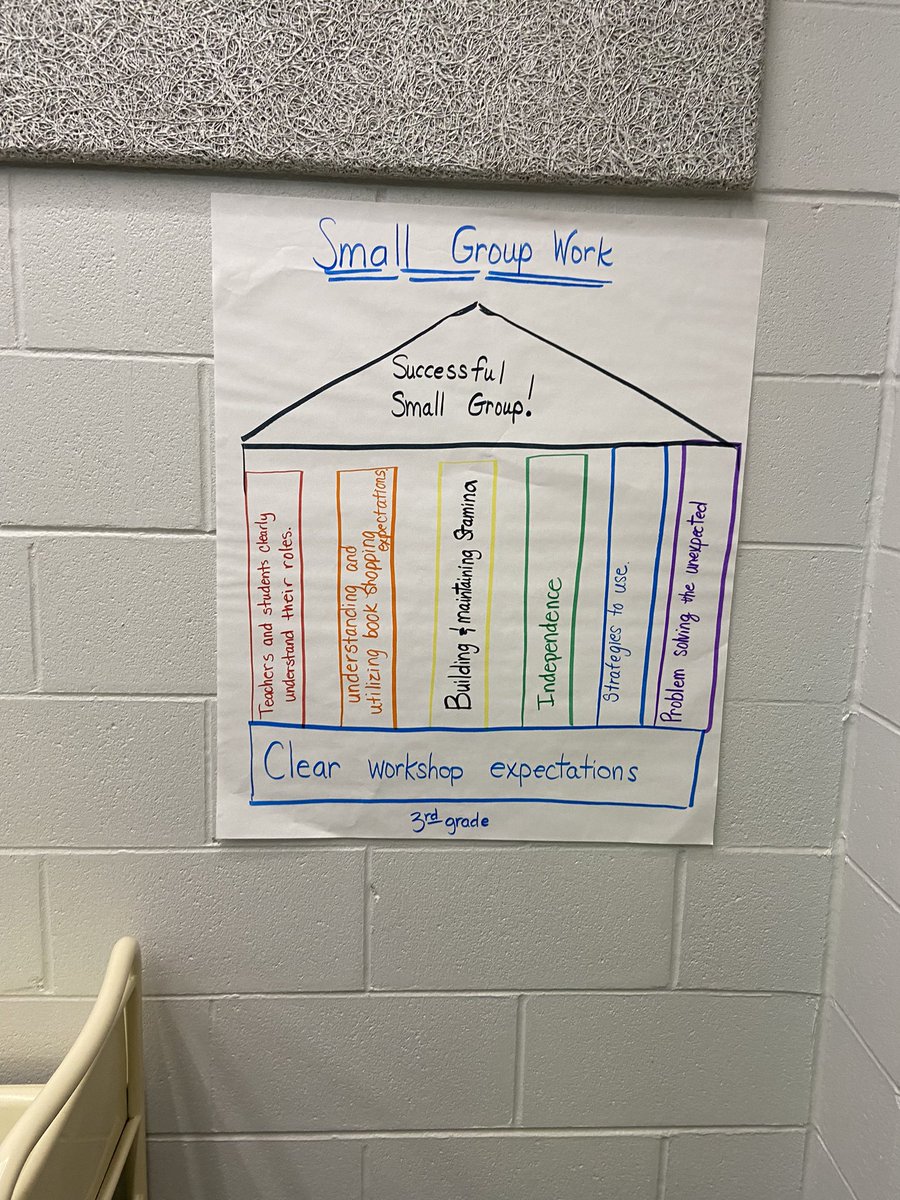 Small Group Work
Successful
Small Group!
Teachers and students clearly
understand their roles.
understanding and
utilizing book shopping
expectations
Building & maintaining Stamina
Independence
Strategies to use.
Problem solving the unexpected
Clear workshop expectations
3rd grade